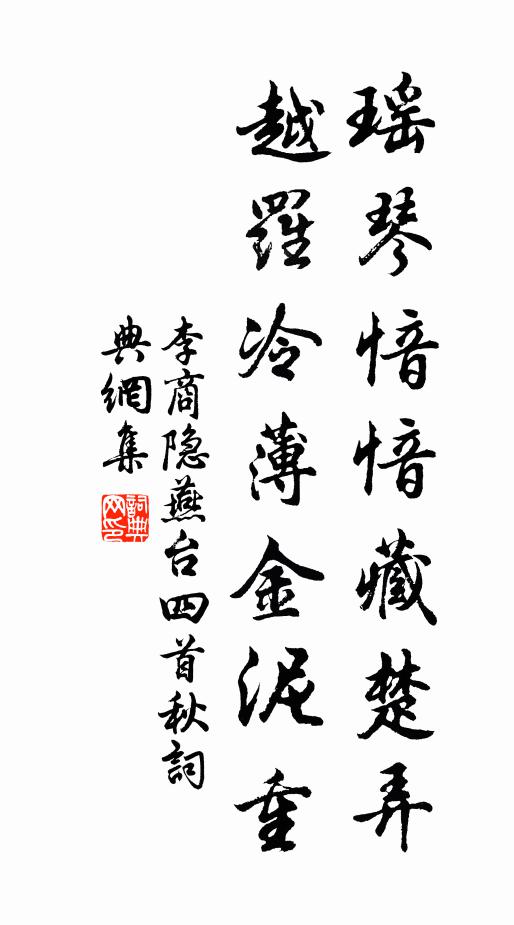 瑶琴愔愔藏楚弄
越羅冷薄金泥重
李商隐燕台四首秋詞
典網集
詞典网印